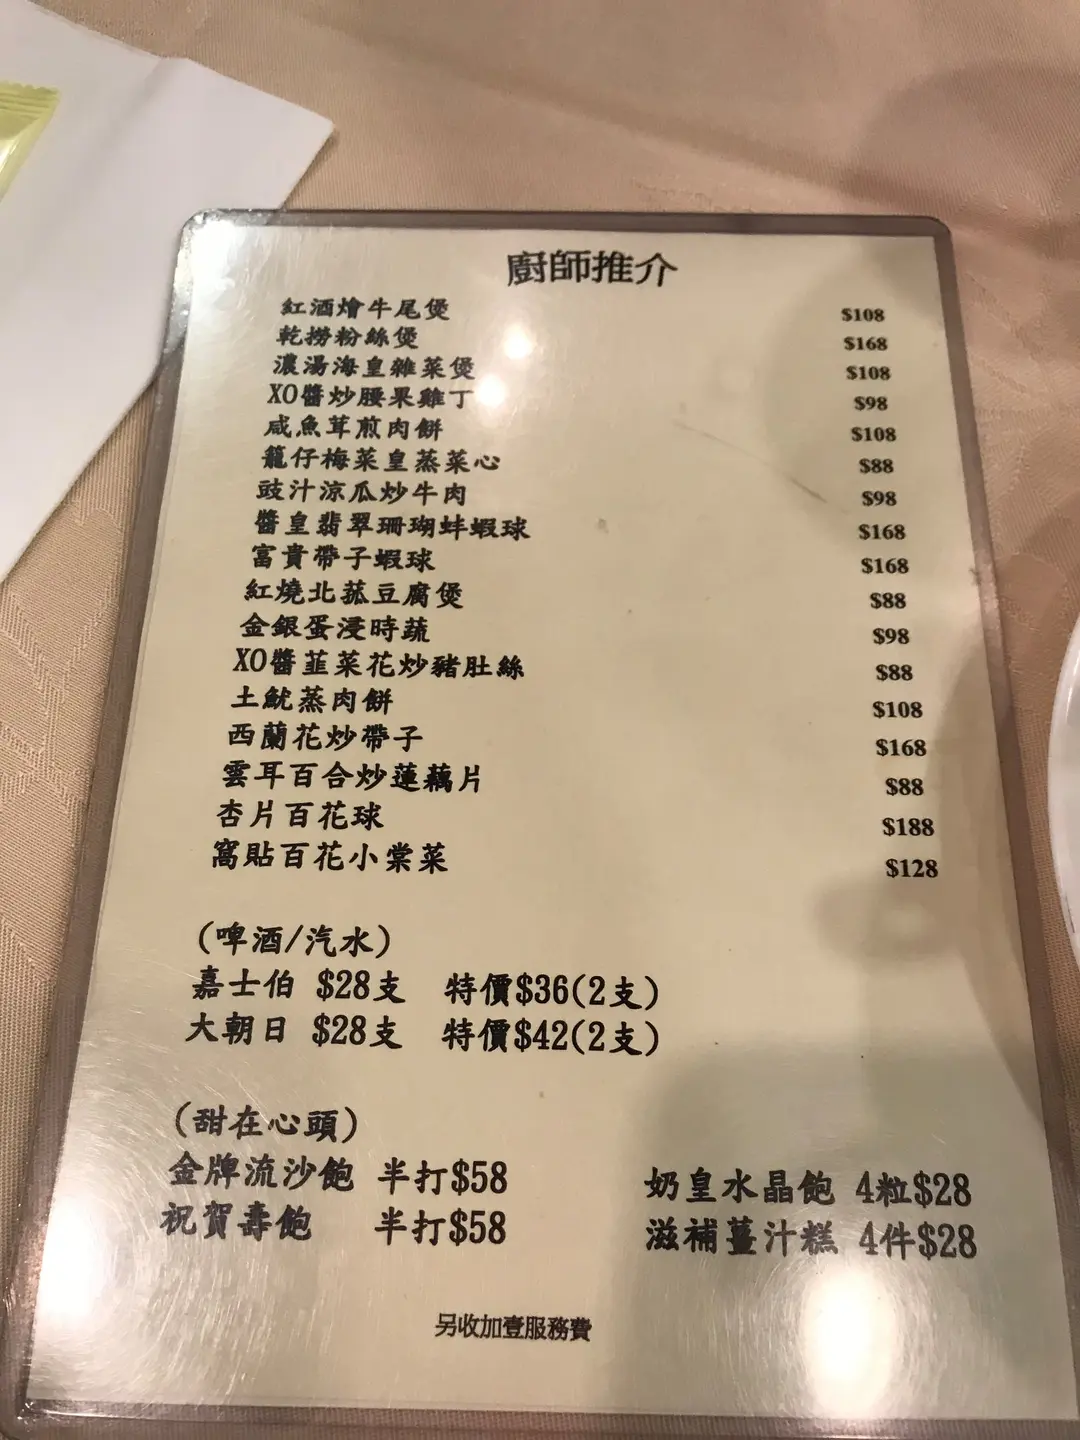 廚師推介
紅酒燴牛尾煲 $108
乾撈粉絲煲 $168
濃湯海皇雜菜煲 $108
XO醬炒腰果雞丁 $98
咸魚茸煎肉餅 $108
籠仔梅菜皇蒸菜心 $88
豉汁涼瓜炒牛肉 $98
醬皇翡翠珊瑚蚌蝦球 $168
富貴帶子蝦球 $168
紅燒北菰豆腐煲 $88
金銀蛋浸時蔬 $98
XO醬韮菜花炒豬肚絲 $88
土魷蒸肉餅 $108
西蘭花炒帶子 $168
雲耳百合炒蓮藕片 $88
杏片百花球 $188
窩貼百花小棠菜 $128
(啤酒/汽水)
嘉士伯 $28支 特價$36(2支)
大朝日 $28支 特價$42(2支)
(甜在心頭)
金牌流沙飽 半打$58 奶皇水晶飽 4粒$28
祝賀壽飽 半打$58 滋補薑汁糕 4件$28
另收加壹服務費